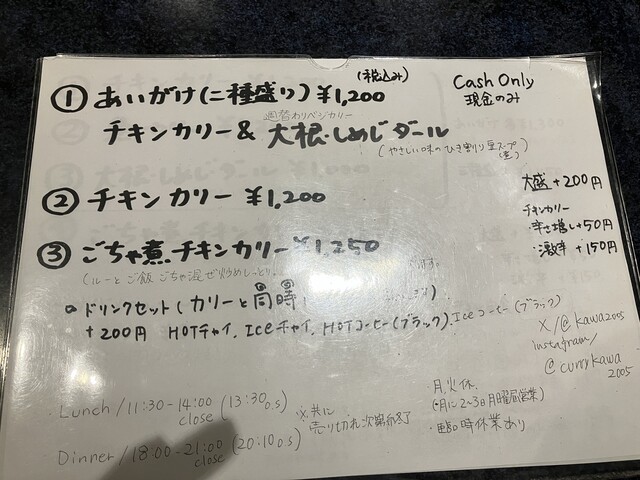 ① あいがけ(二種盛り)¥1,200
(税込み)
Cash Only
現金のみ
週替わりベジカリー
チキンカリー & 大根・しめじダール
(やさしい味のひき割り豆スープ
② チキンカリー ¥1,200
大盛+200円
チキンカリー
・辛さ増し+50円
・激辛+150円
③ ごちゃ煮チキンカリー ¥1,250
(ルーとご飯ごちゃ混ぜ炒めしっとり
ドリンクセット(カリーと同時
+200円 HOTチャイ. Iceチャイ. HOTコーヒー(ブラック). Iceコーヒー(ブラック)
X/@kawa2005
Instagram/
@currykawa
2005
・Lunch/11:30-14:00 (13:30 o.s)
close
※共に
売り切れ次第終了
Dinner/18:00-21:00 (20:10 o.s)
close
・月火休
(月に2~3日月曜昼営業)
・臨時休業あり